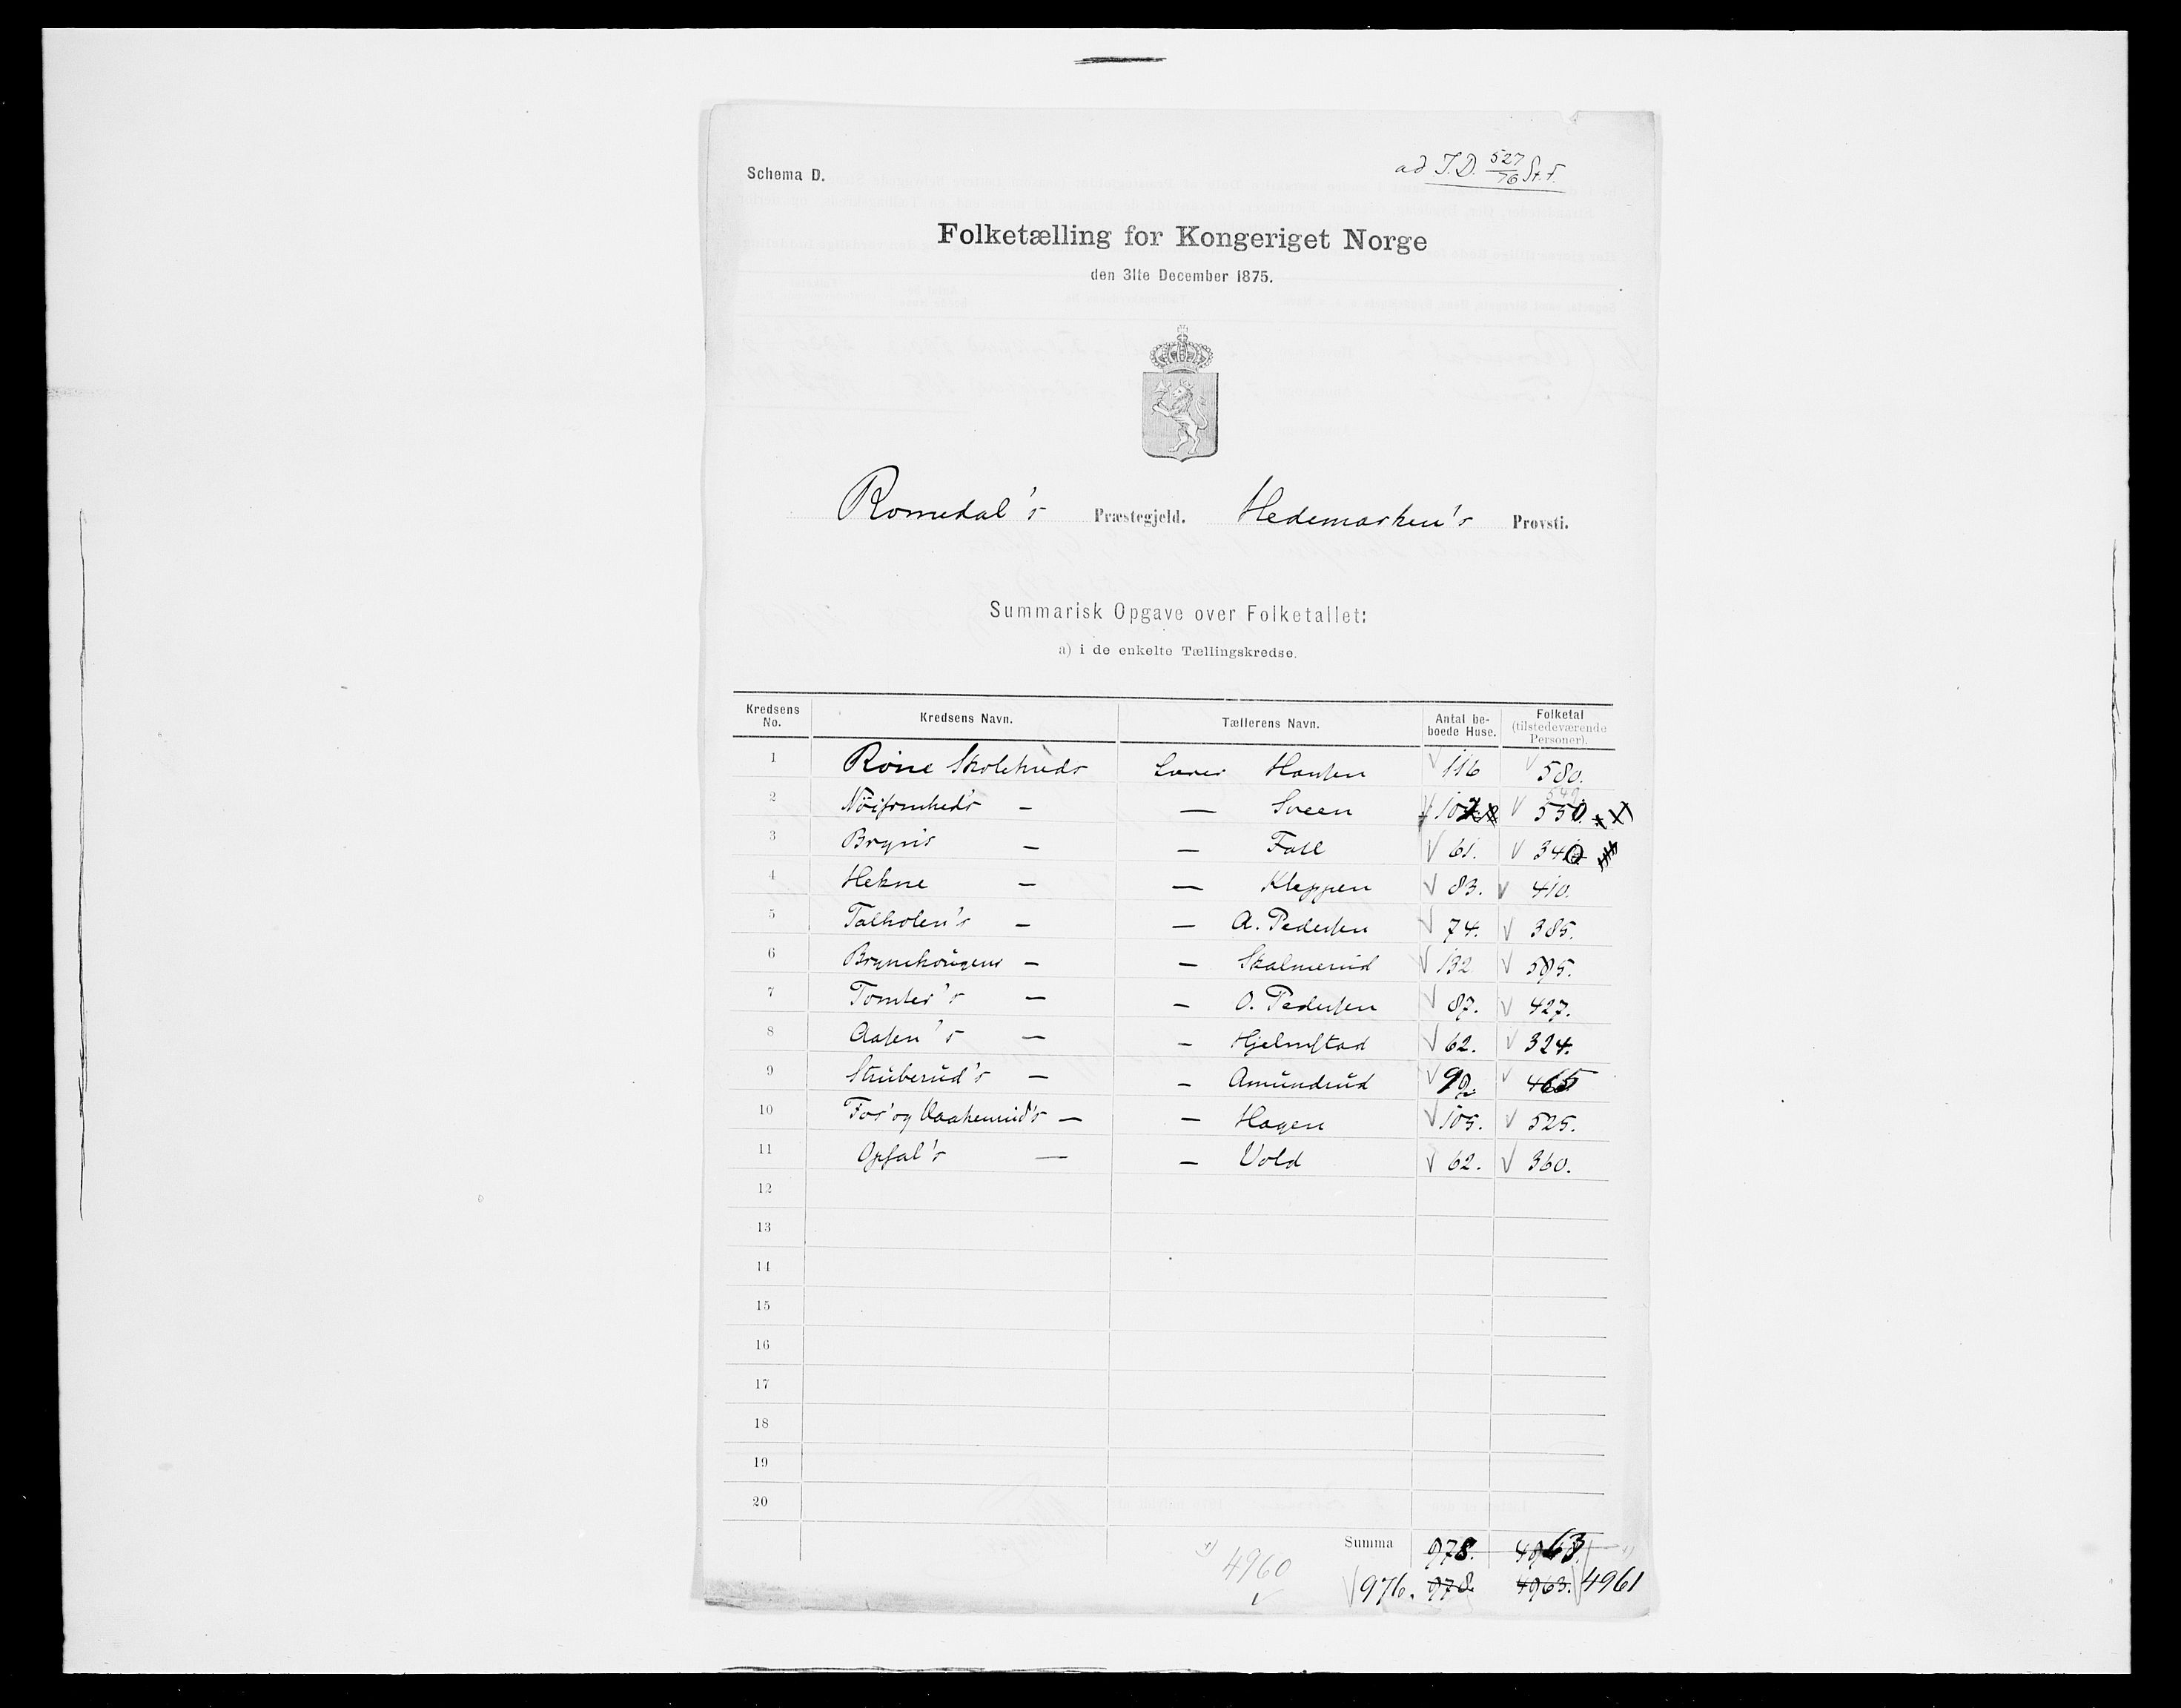 ad J.D. 527/76 St. F.
Schema D.
Folketælling for Kongeriget Norge
den 31te December 1875.
Romedal's Præstegjeld. Hedemarken's Provsti.
Summarisk Opgave over Folketallet:
a) i de enkelte Tællingskredse.
Kredsens No. Kredsens Navn. Tællerens Navn. Antal beboede Huse. Folketal (tilstedeværende Personer).
1 Skolekreds Lærer Hansen 116 580.
2 Nöisomhed's — — Sveen 549 550.
3 — — 61. 340
4 Hekne — — Kleppen 83. 410.
5 Talholen's — — A. Pedersen 74. 385.
6 — — Skalmerud 132 595.
7 Tomter's — — O. Pedersen 87. 427.
8 Aasen's — — Hjelmstad 62. 324.
9 Struberud's — — Amundrud 465
10 Fos' og Vaakerud's — — Hagen 105. 525.
11 Opsal's — — Vold 62. 360.
12
13
14
15
16
17
18
19
20
Summa 978. 4963.
4960 976. 978 4963. 4961